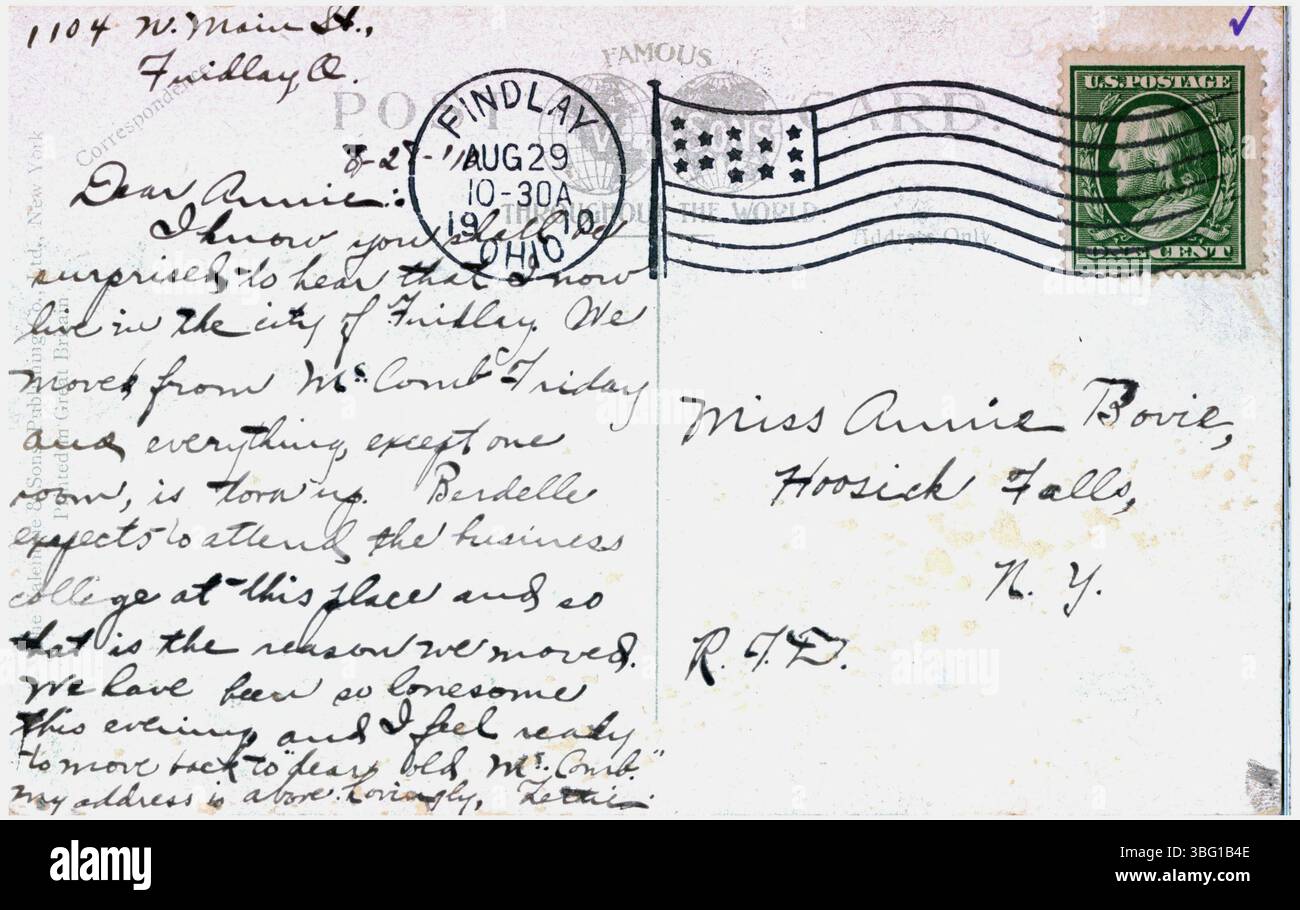 1104 N. Main St.,
Findlay, O.
Correspondence
FAMOUS
POST CARD.
VALENTINE & SONS
THROUGHOUT THE WORLD
Address Only.
FINDLAY
AUG 29
10-30A
1910
OHIO
U.S. POSTAGE
ONE CENT
8-28-'10
Dear Annie:
I know you shall be
surprised to hear that I now
live in the city of Findlay. We
moved from McComb Friday
and everything, except one
room, is torn up. Berdelle
expects to attend the business
college at this place and so
that is the reason we moved.
We have been so lonesome
this evening and I feel ready
to move back to "dear old McComb."
My address is above. Lovingly, Lettie.
Miss Annie Bovie,
Hoosick Falls,
N. Y.
R.F.D.
The Valentine & Sons Publishing Co., Ltd., New York
Printed in Great Britain
alamy
Image ID: 3BG1B4E
www.alamy.com